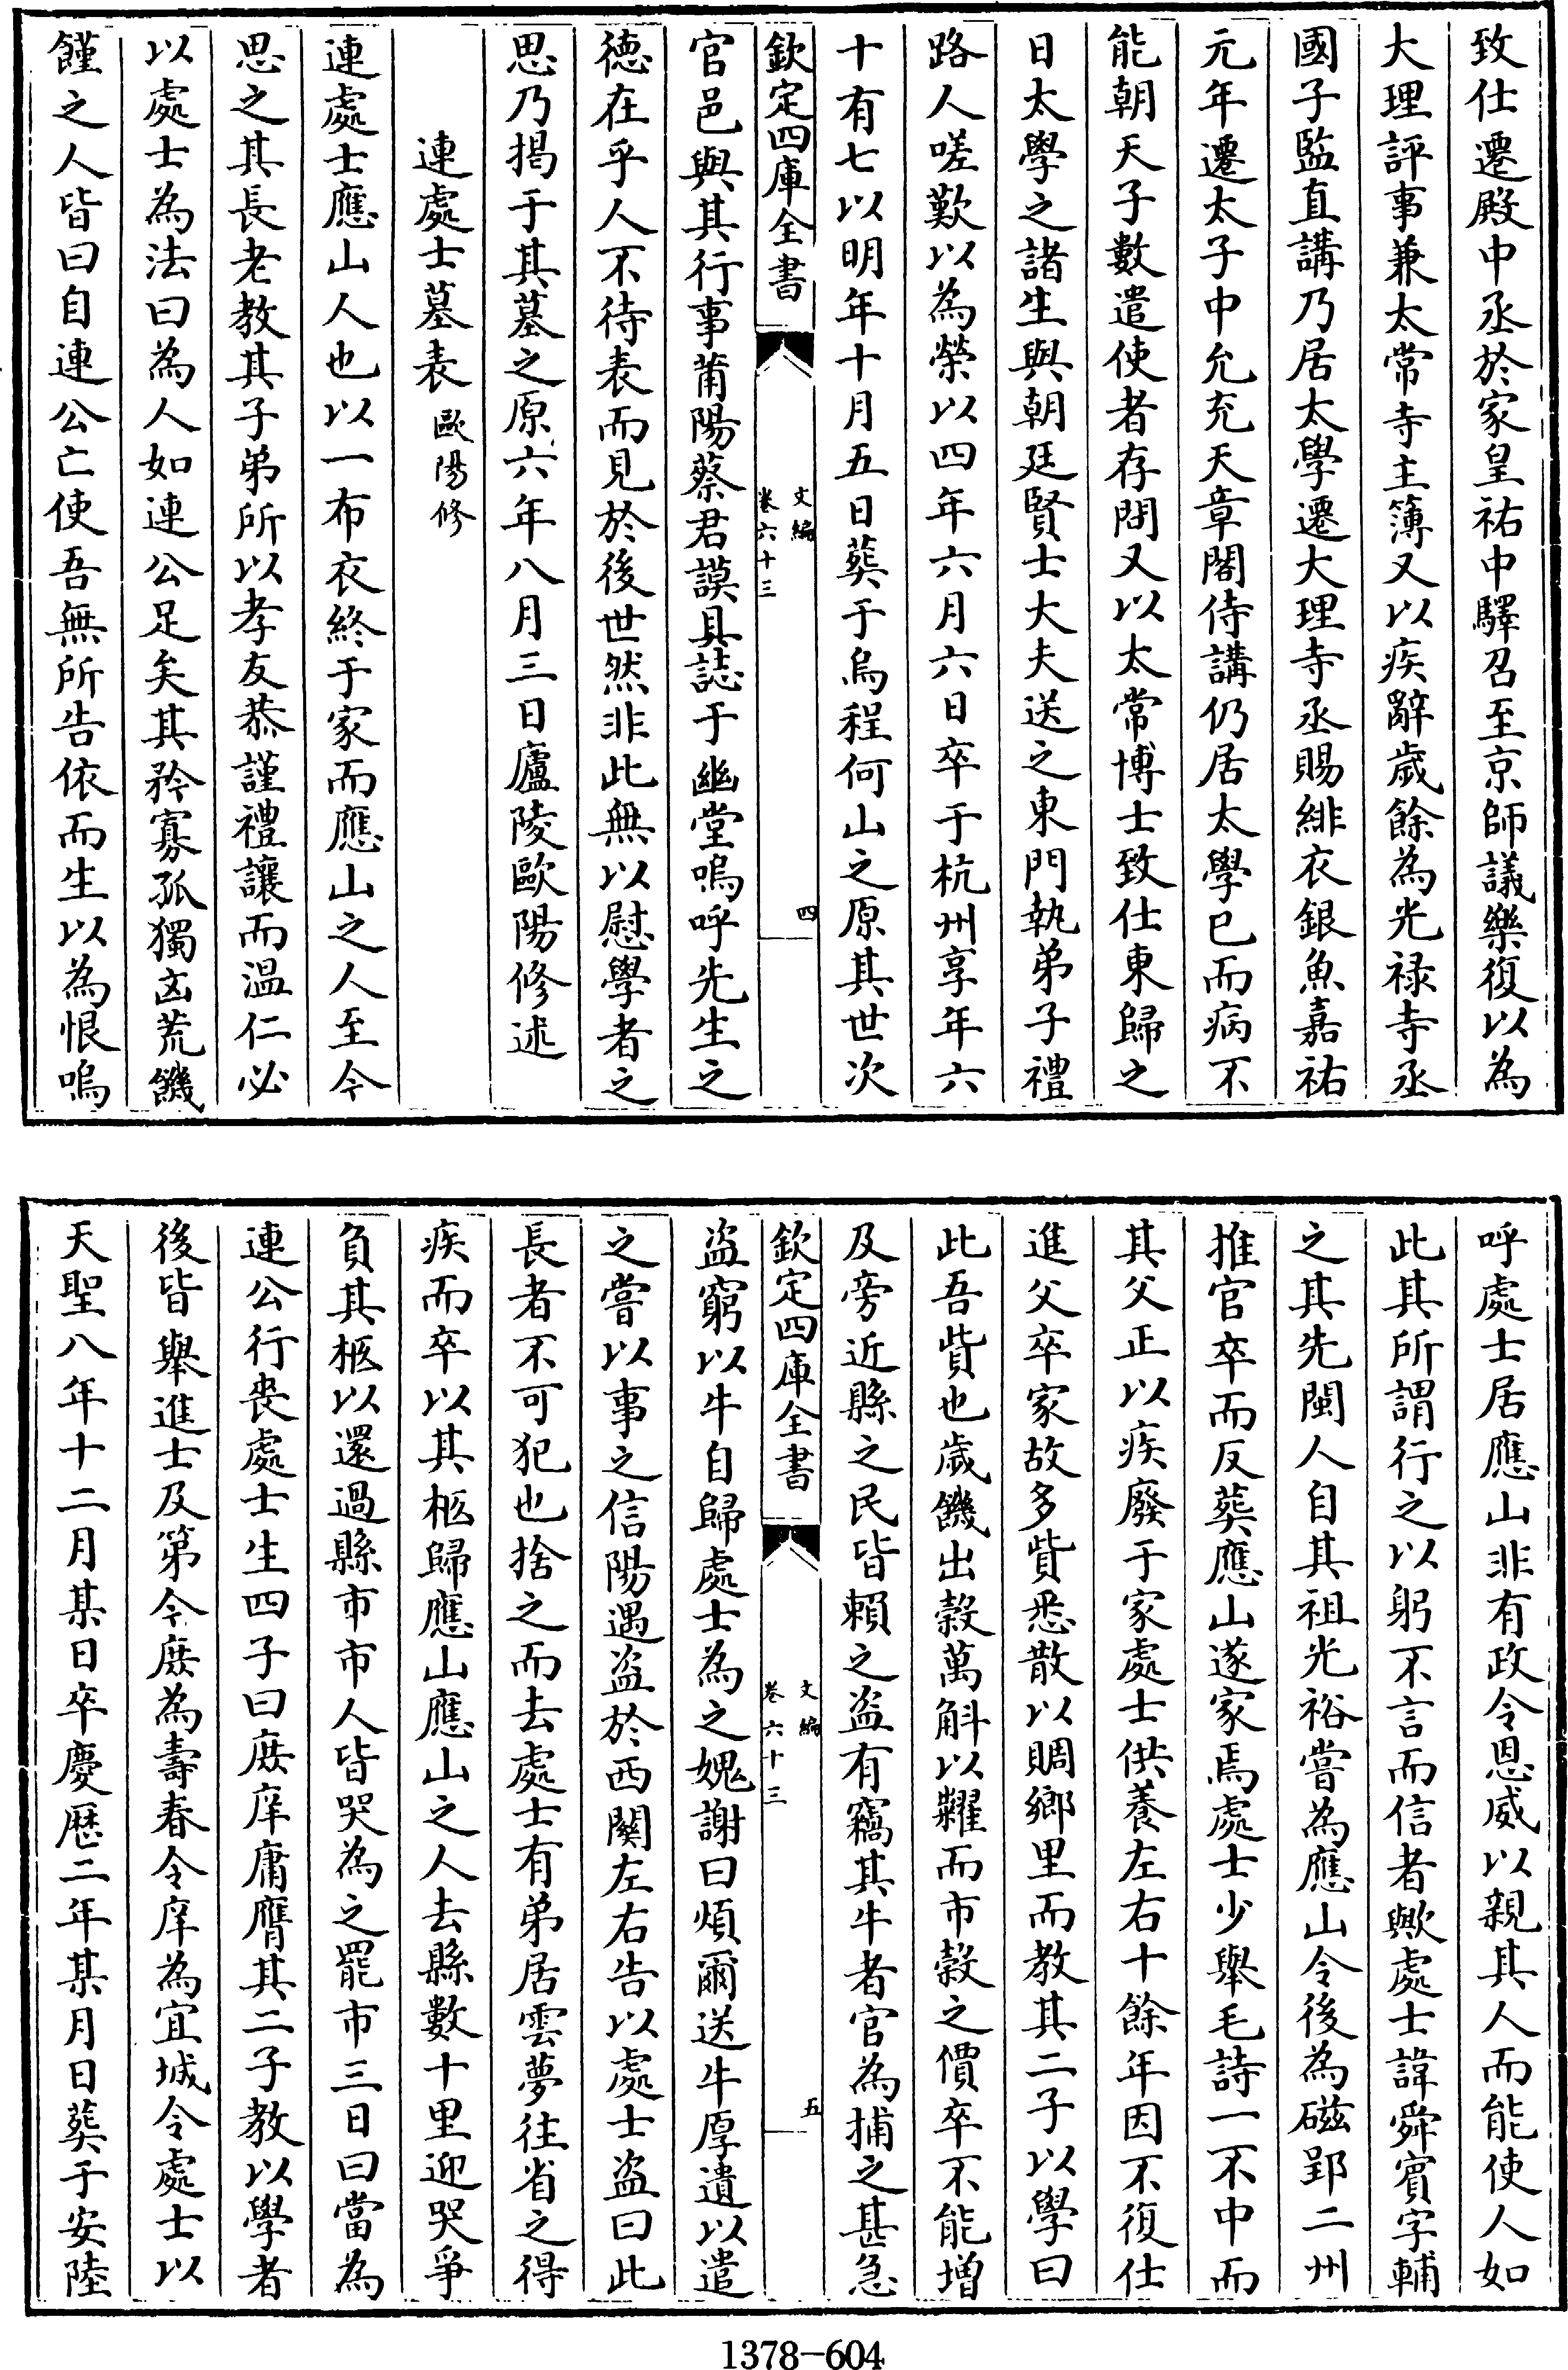 致仕遷殿中丞於家皇祐中驛召至京師議樂復以為
大理評事兼太常寺主簿又以疾辭歲餘為光禄寺丞
國子監直講乃居太學遷大理寺丞賜緋衣銀魚嘉祐
元年遷太子中允充天章閣侍講仍居太學已而病不
能朝天子數遣使者存問又以太常博士致仕東歸之
日太學之諸生與朝廷賢士大夫送之東門執弟子禮
路人嗟歎以為榮以四年六月六日卒于杭州享年六
十有七以明年十月五日葬于烏程何山之原其世次
欽定四庫全書
文編
卷六十三
四
官邑與其行事莆陽蔡君謨具誌于幽堂嗚呼先生之
德在乎人不待表而見於後世然非此無以慰學者之
思乃揭于其墓之原六年八月三日廬陵歐陽修述
連處士墓表歐陽修
連處士應山人也以一布衣終于家而應山之人至今
思之其長老教其子弟所以孝友恭謹禮讓而温仁必
以處士為法曰為人如連公足矣其矜寡孤獨凶荒饑
饉之人皆曰自連公亡使吾無所告依而生以為恨嗚
呼處士居應山非有政令恩威以親其人而能使人如
此其所謂行之以躬不言而信者歟處士諱舜賓字輔
之其先閩人自其祖光裕嘗為應山令後為磁郢二州
推官卒而反葬應山遂家焉處士少舉毛詩一不中而
其父正以疾廢于家處士供養左右十餘年因不復仕
進父卒家故多貲悉散以賙鄉里而教其二子以學曰
此吾貲也歲饑出穀萬斛以糶而市穀之價卒不能增
及旁近縣之民皆賴之盗有竊其牛者官為捕之甚急
欽定四庫全書
文編
卷六十三
五
盗窮以牛自歸處士為之媿謝曰煩爾送牛厚遺以遣
之嘗以事之信陽遇盗於西關左右告以處士盗曰此
長者不可犯也捨之而去處士有弟居雲夢往省之得
疾而卒以其柩歸應山應山之人去縣數十里迎哭爭
負其柩以還過縣市市人皆哭為之罷市三日曰當為
連公行喪處士生四子曰庶庠庸膺其二子教以學者
後皆舉進士及第今庶為壽春令庠為宜城令處士以
天聖八年十二月某日卒慶歴二年某月日葬于安陸
1378-604